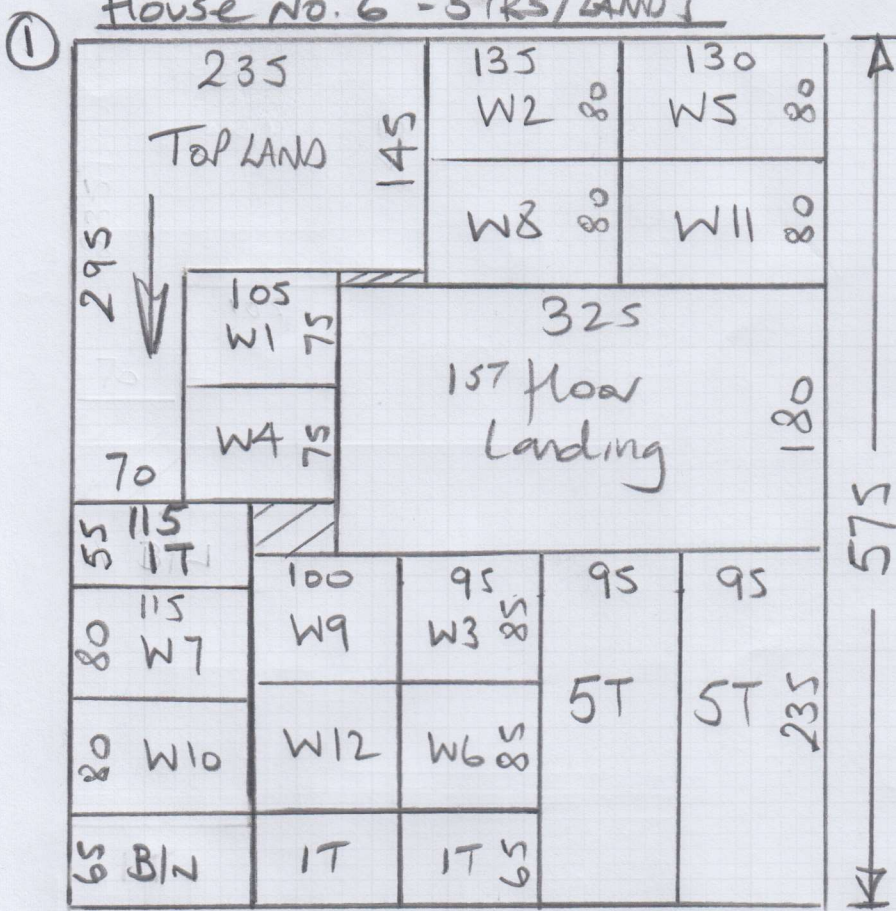 House No. 6 - STRS/LAND
1
235
TOP LAND
145
295
70
135
W2 80
130
W5 80
W8 80
W11 80
105
W1 75
W4 75
325
1ST floor
Landing
180
575
55 115
1T
115
80 W7
80 W10
65 B/N
100
W9
95
W3 85
95
5T
95
5T 235
W12
W6 85
1T
1T 65